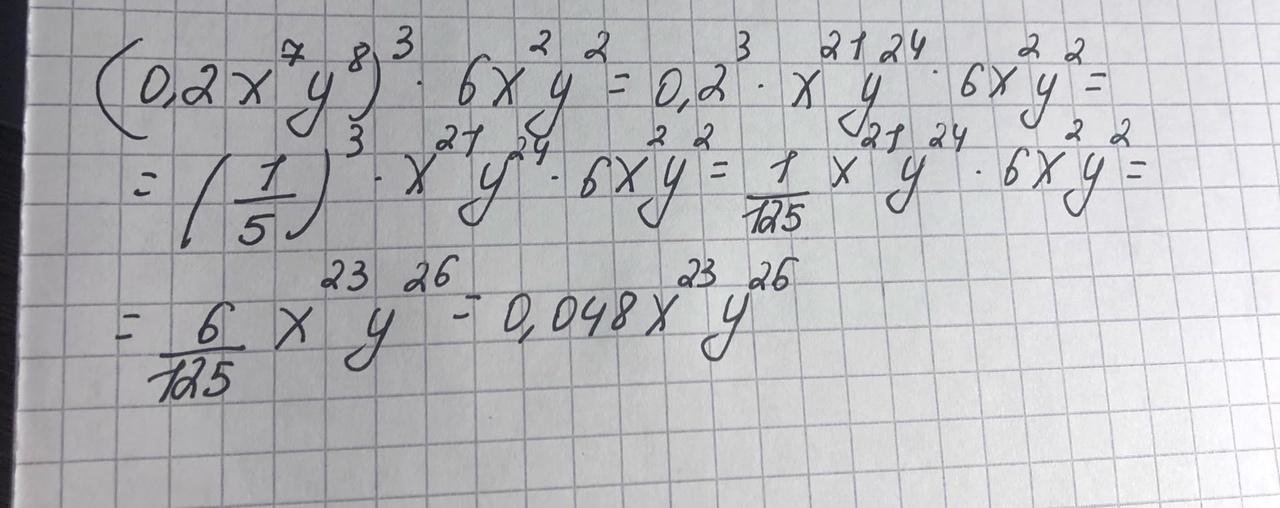 (0,2x⁷y⁸)³ · 6x²y² = 0,2³ · x²¹y²⁴ · 6x²y² =
= (1/5)³ · x²¹y²⁴ · 6x²y² = 1/125 x²¹y²⁴ · 6x²y² =
= 6/125 x²³y²⁶ = 0,048x²³y²⁶